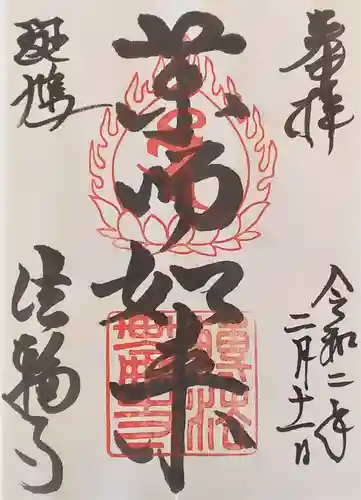 奉拝
令和二年
二月十一日
薬師如来
斑鳩
法輪寺